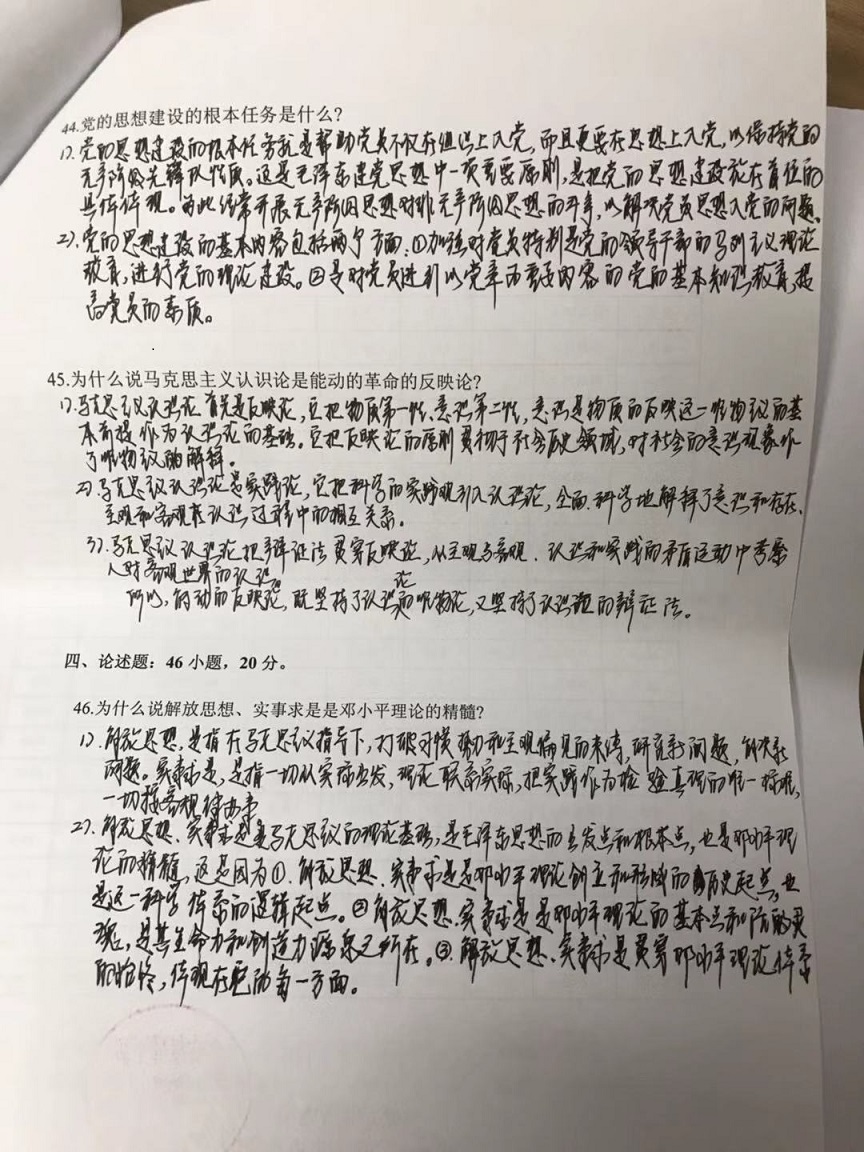 44.党的思想建设的根本任务是什么?
1).党的思想建设的根本任务就是帮助党员不仅在组织上入党,而且更要在思想上入党,以保持党的
无产阶级先锋队性质。这是毛泽东建党思想中一项重要原则,是把党的思想建设放在首位的
具体体现。为此经常开展无产阶级思想对非无产阶级思想的斗争,以解决党员思想入党的问题。
2).党的思想建设的基本内容包括两个方面:①加强对党员特别是党的领导干部的马列主义理论
教育,进行党的理论建设。②是对党员进行以党章为重要内容的党的基本知识教育,提
高党员的素质。
45.为什么说马克思主义认识论是能动的革命的反映论?
1).马克思主义认识论首先是反映论,它把物质第一性、意识第二性,意识是物质的反映这一唯物主义的基
本前提作为认识论的基础。它把反映论的原则贯彻于社会历史领域,对社会的意识现象作
了唯物主义的解释。
2).马克思主义认识论是实践论,它把科学的实践观引入认识论,全面.科学地解释了意识和存在、
主观和客观在认识过程中的相互关系。
3).马克思主义认识论把辩证法贯穿反映论,从主观与客观.认识和实践的矛盾运动中考察
人对客观世界的认识。
所以,能动的反映论,既坚持了认识论的唯物论,又坚持了认识论的辩证法。
四、论述题:46小题,20分。
46.为什么说解放思想、实事求是是邓小平理论的精髓?
1).解放思想,是指在马克思主义指导下,打破习惯势力和主观偏见的束缚,研究新问题,解决新
问题。实事求是,是指一切从实际出发,理论联系实际,把实践作为检验真理的唯一标准,
一切按客观规律办事
2).解放思想.实事求是是马克思主义的理论基础,是毛泽东思想的出发点和根本点,也是邓小平理
论的精髓,这是因为①.解放思想.实事求是是邓小平理论创立和形成的历史起点,也
是这一科学体系的逻辑起点。②解放思想.实事求是是邓小平理论的基本点和活的灵
魂,是其生命力和创造力源泉之所在。③.解放思想.实事求是贯穿邓小平理论体系
的始终,体现在它的每一方面。